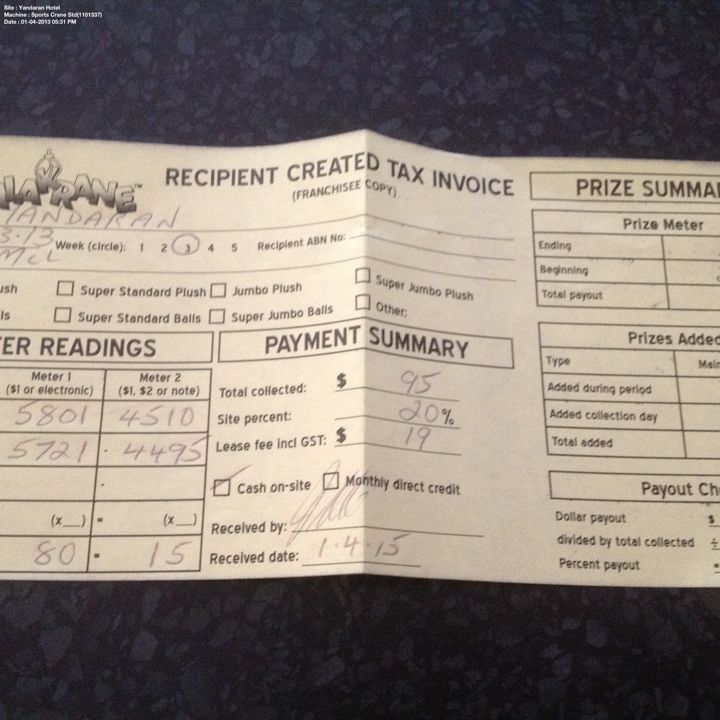 Site : Yandaran Hotel
Machine : Sports Crane Std(1101337)
Date : 01-04-2013 05:31 PM
RECIPIENT CREATED TAX INVOICE
(FRANCHISEE COPY)
YANDARAN
3.13 Week (circle): 1 2 3 4 5 Recipient ABN No:
ush Super Standard Plush Jumbo Plush Super Jumbo Plush
ls Super Standard Balls Super Jumbo Balls Other:
ER READINGS
Meter 1 Meter 2
($1 or electronic) ($1, $2 or note)
5801 4510
5721 4495
(x__) = (x__)
80 = 15
PAYMENT SUMMARY
Total collected: $ 95
Site percent: 20%
Lease fee incl GST: $ 19
Cash on-site Monthly direct credit
Received by:
Received date: 1.4.15
PRIZE SUMMA
Prize Meter
Ending
Beginning
Total payout
Prizes Added
Type Main
Added during period
Added collection day
Total added
Payout Ch
Dollar payout $
divided by total collected ÷
Percent payout =